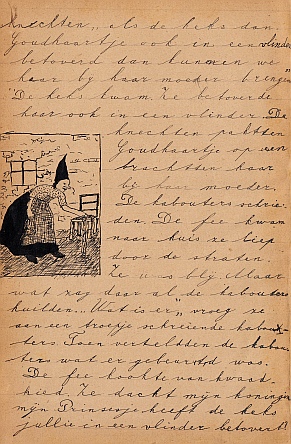 knechten, als de heks dan
Goudhaartje ook in een vlinder
betoverd dan kunnen we
haar bij haar moeder brengen"
De heks kwam. Ze betoverde
haar ook in een vlinder De
knechten pakten
Goudhaartje op en
brachtten haar
bij haar moeder.
De kabouters schrei-
den. De fee kwam
naar huis ze liep
door de straten.
Ze was blij. Maar
wat zag daar al de kabouters
huilden. „Wat is er", vroeg ze
aan een troepje schreiende kabou-
ters. Toen verteldden de kabou-
ters wat er gebeurd was.
De fee kookte van kwaad-
hied. Ze dacht mijn koningen
mijn Prinsesje heeft de heks
jullie in een vlinder betoverd